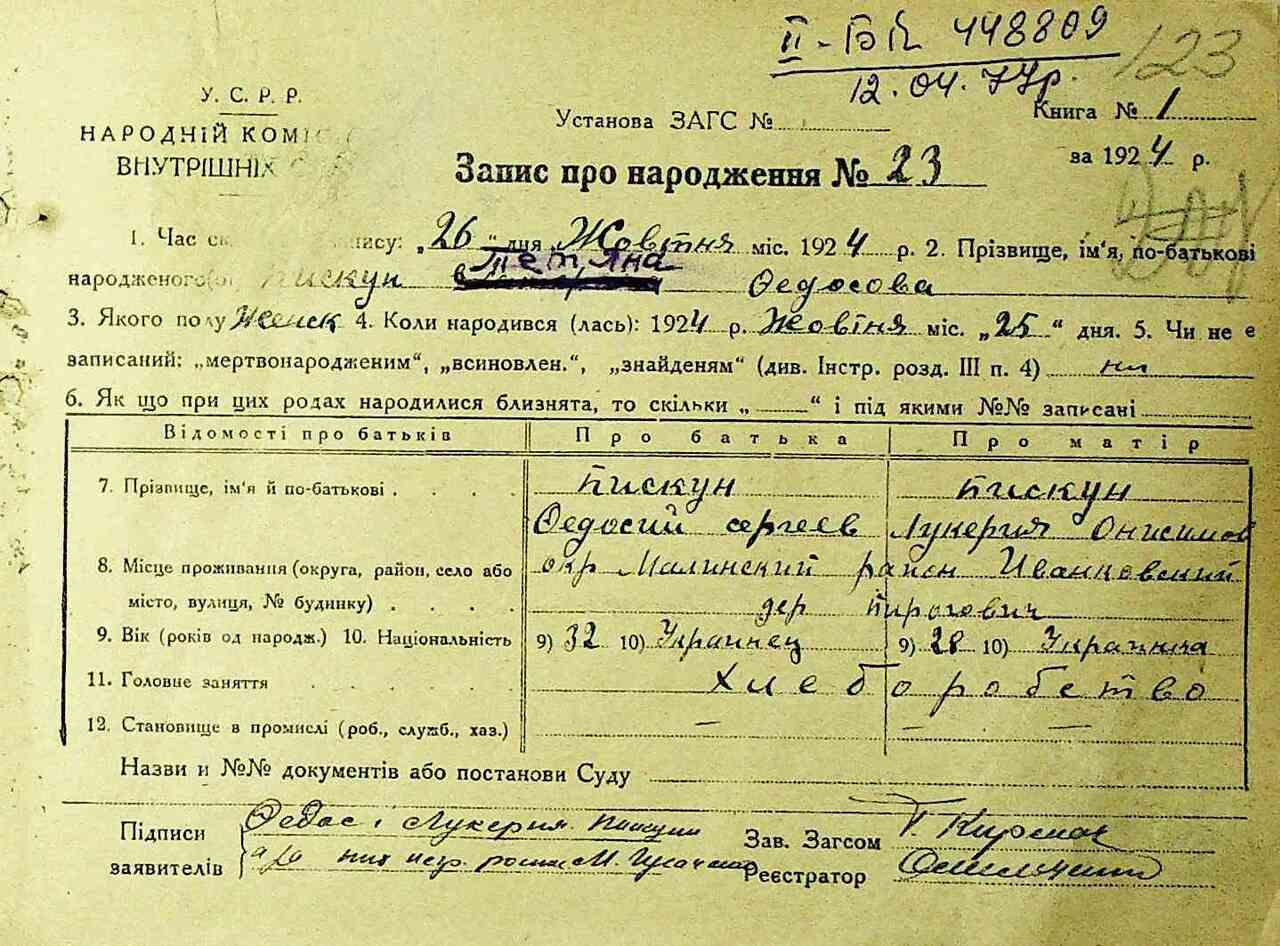 ІІ-БК 448809
123
12.04.77р.
У. С. Р. Р.
Установа ЗАГС №
Книга № 1
НАРОДНІЙ КОМІС
ВНУТРІШНІХ С
за 1924 р.
Запис про народження № 23
1. Час ск запису: „26“ дня Жовтня міс. 1924 р. 2. Прізвище, ім'я, по-батькові
Тетяна
народженого(ої) Пискун Федосова
3. Якого полу Женск 4. Коли народився (лась): 1924 р. Жовтня міс. „25“ дня. 5. Чи не є
записаний: „мертвонародженим“, „всиновлен.“, „знайденям“ (див. Інстр. розд. III п. 4) ні
6. Як що при цих родах народилися близнята, то скільки „ “ і під якими №№ записані
Відомості про батьків Про батька Про матір
7. Прізвище, ім'я й по-батькові . . . . Пискун Пискун
Федосий Сергеев Лукерия Онисимов
8. Місце проживання (округа, район, село або окр Малинский район Иванковский
місто, вулиця, № будинку) . . . . дер Пирогович
9. Вік (років од народж.) 10. Національність 9) 32 10) Украинец 9) 28 10) Украинка
11. Головне заняття . . . . . Хлеборобство
12. Становище в промислі (роб., служб., хаз.) — — —
Назви и №№ документів або постанови Суду
Підписи Федос і Лукерия Пискун Зав. Загсом
заявителів а за них неgr. М. Реєстратор